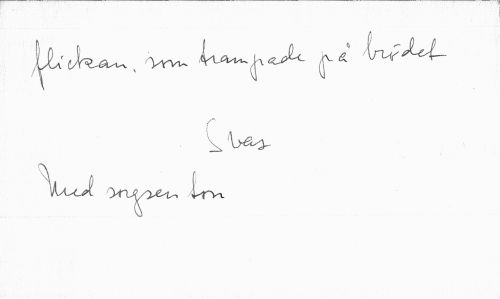 flickan, som trampade på brödet
Svas
Med sorgsen ton